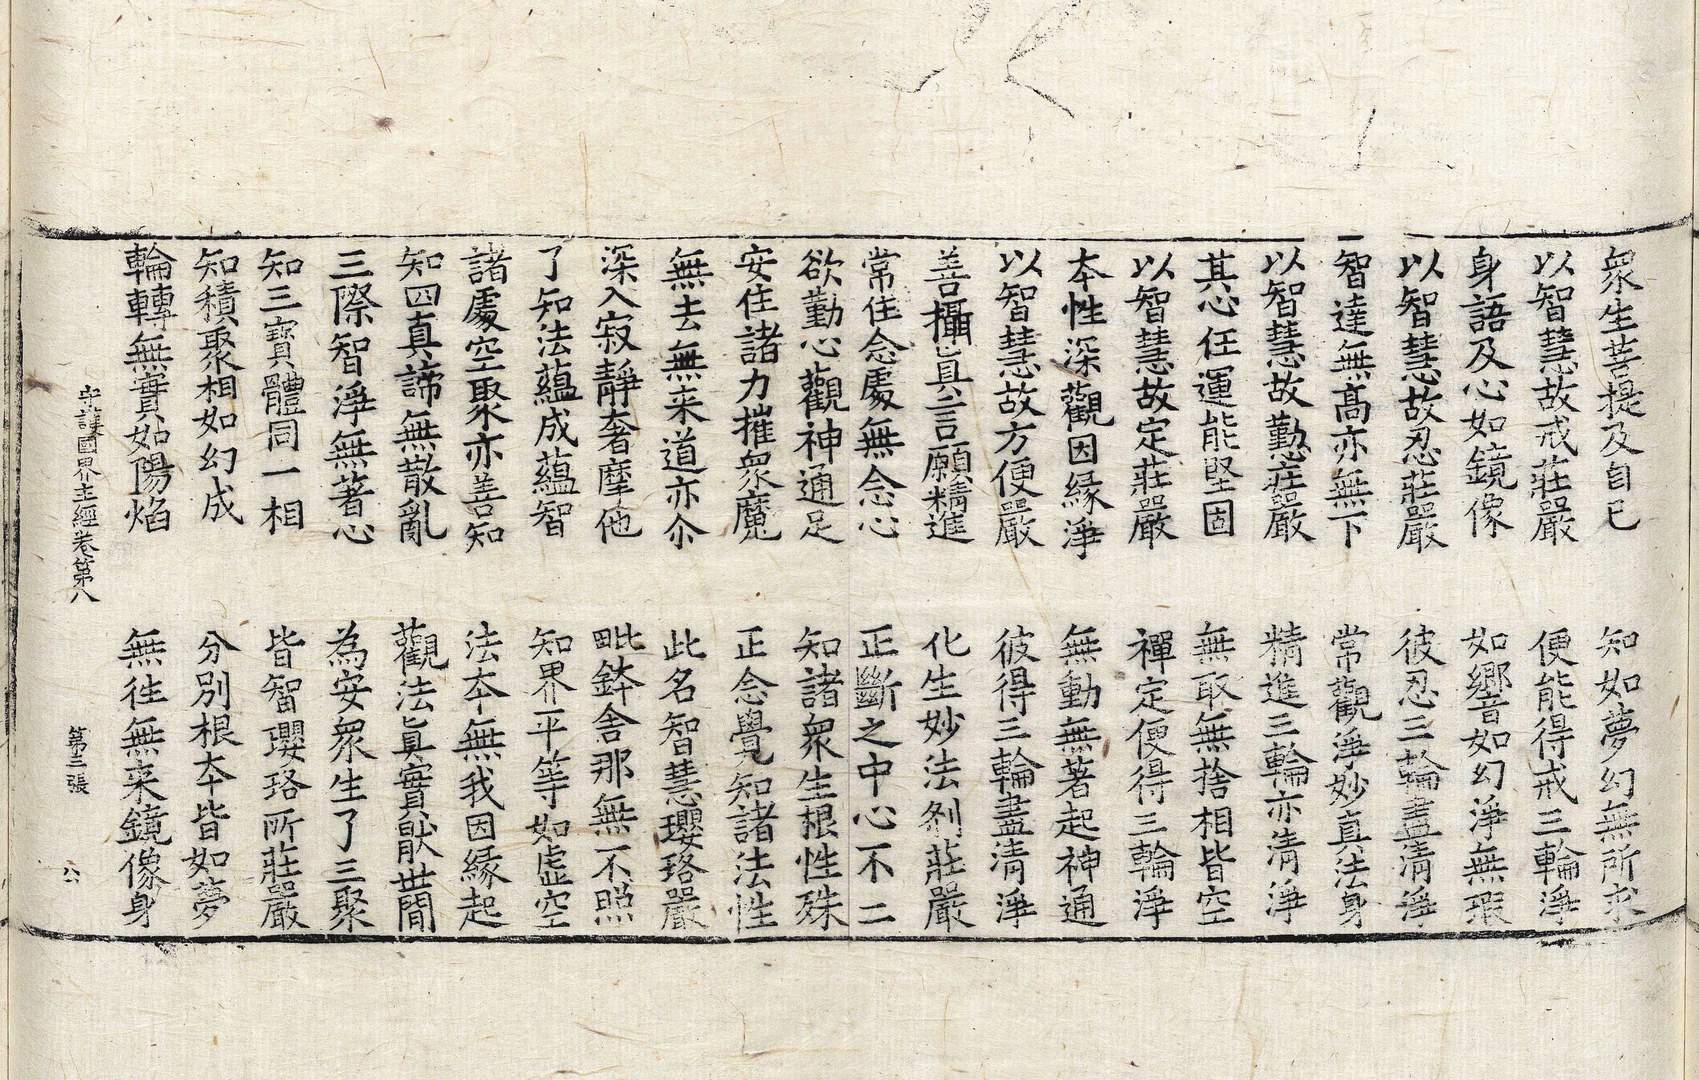 衆生菩提及自己　知如夢幻無所求
以智慧故戒莊嚴　便能得戒三輪淨
身語及心如鏡像　如響如幻淨無瑕
以智慧故忍莊嚴　彼忍三輪盡清淨
智達無高亦無下　常觀淨妙真法身
以智慧故懃莊嚴　精進三輪亦清淨
其心任運能堅固　無取無捨相皆空
以智慧故定莊嚴　禪定便得三輪淨
本性深觀因緣淨　無動無著起神通
以智慧故方便嚴　彼得三輪盡清淨
善攝真言願精進　化生妙法刹莊嚴
常住念處無念心　正斷之中心不二
欲勤心觀神通足　知諸衆生根性殊
安住諸力摧衆魔　正念覺知諸法性
無去無来道亦尒　此名智慧瓔珞嚴
深入寂靜奢摩他　毗鉢舍那無不照
了知法蘊成蘊智　知界平等如虛空
諸處空聚亦善知　法本無我因緣起
知四真諦無散亂　觀法真實猒世間
三際智淨無著心　為安衆生了三聚
知三寶體同一相　皆智瓔珞所莊嚴
知積聚相如幻成　分別根本皆如夢
輪轉無實如陽焰　無往無来鏡像身
守護國界主經卷第八　第三張　公